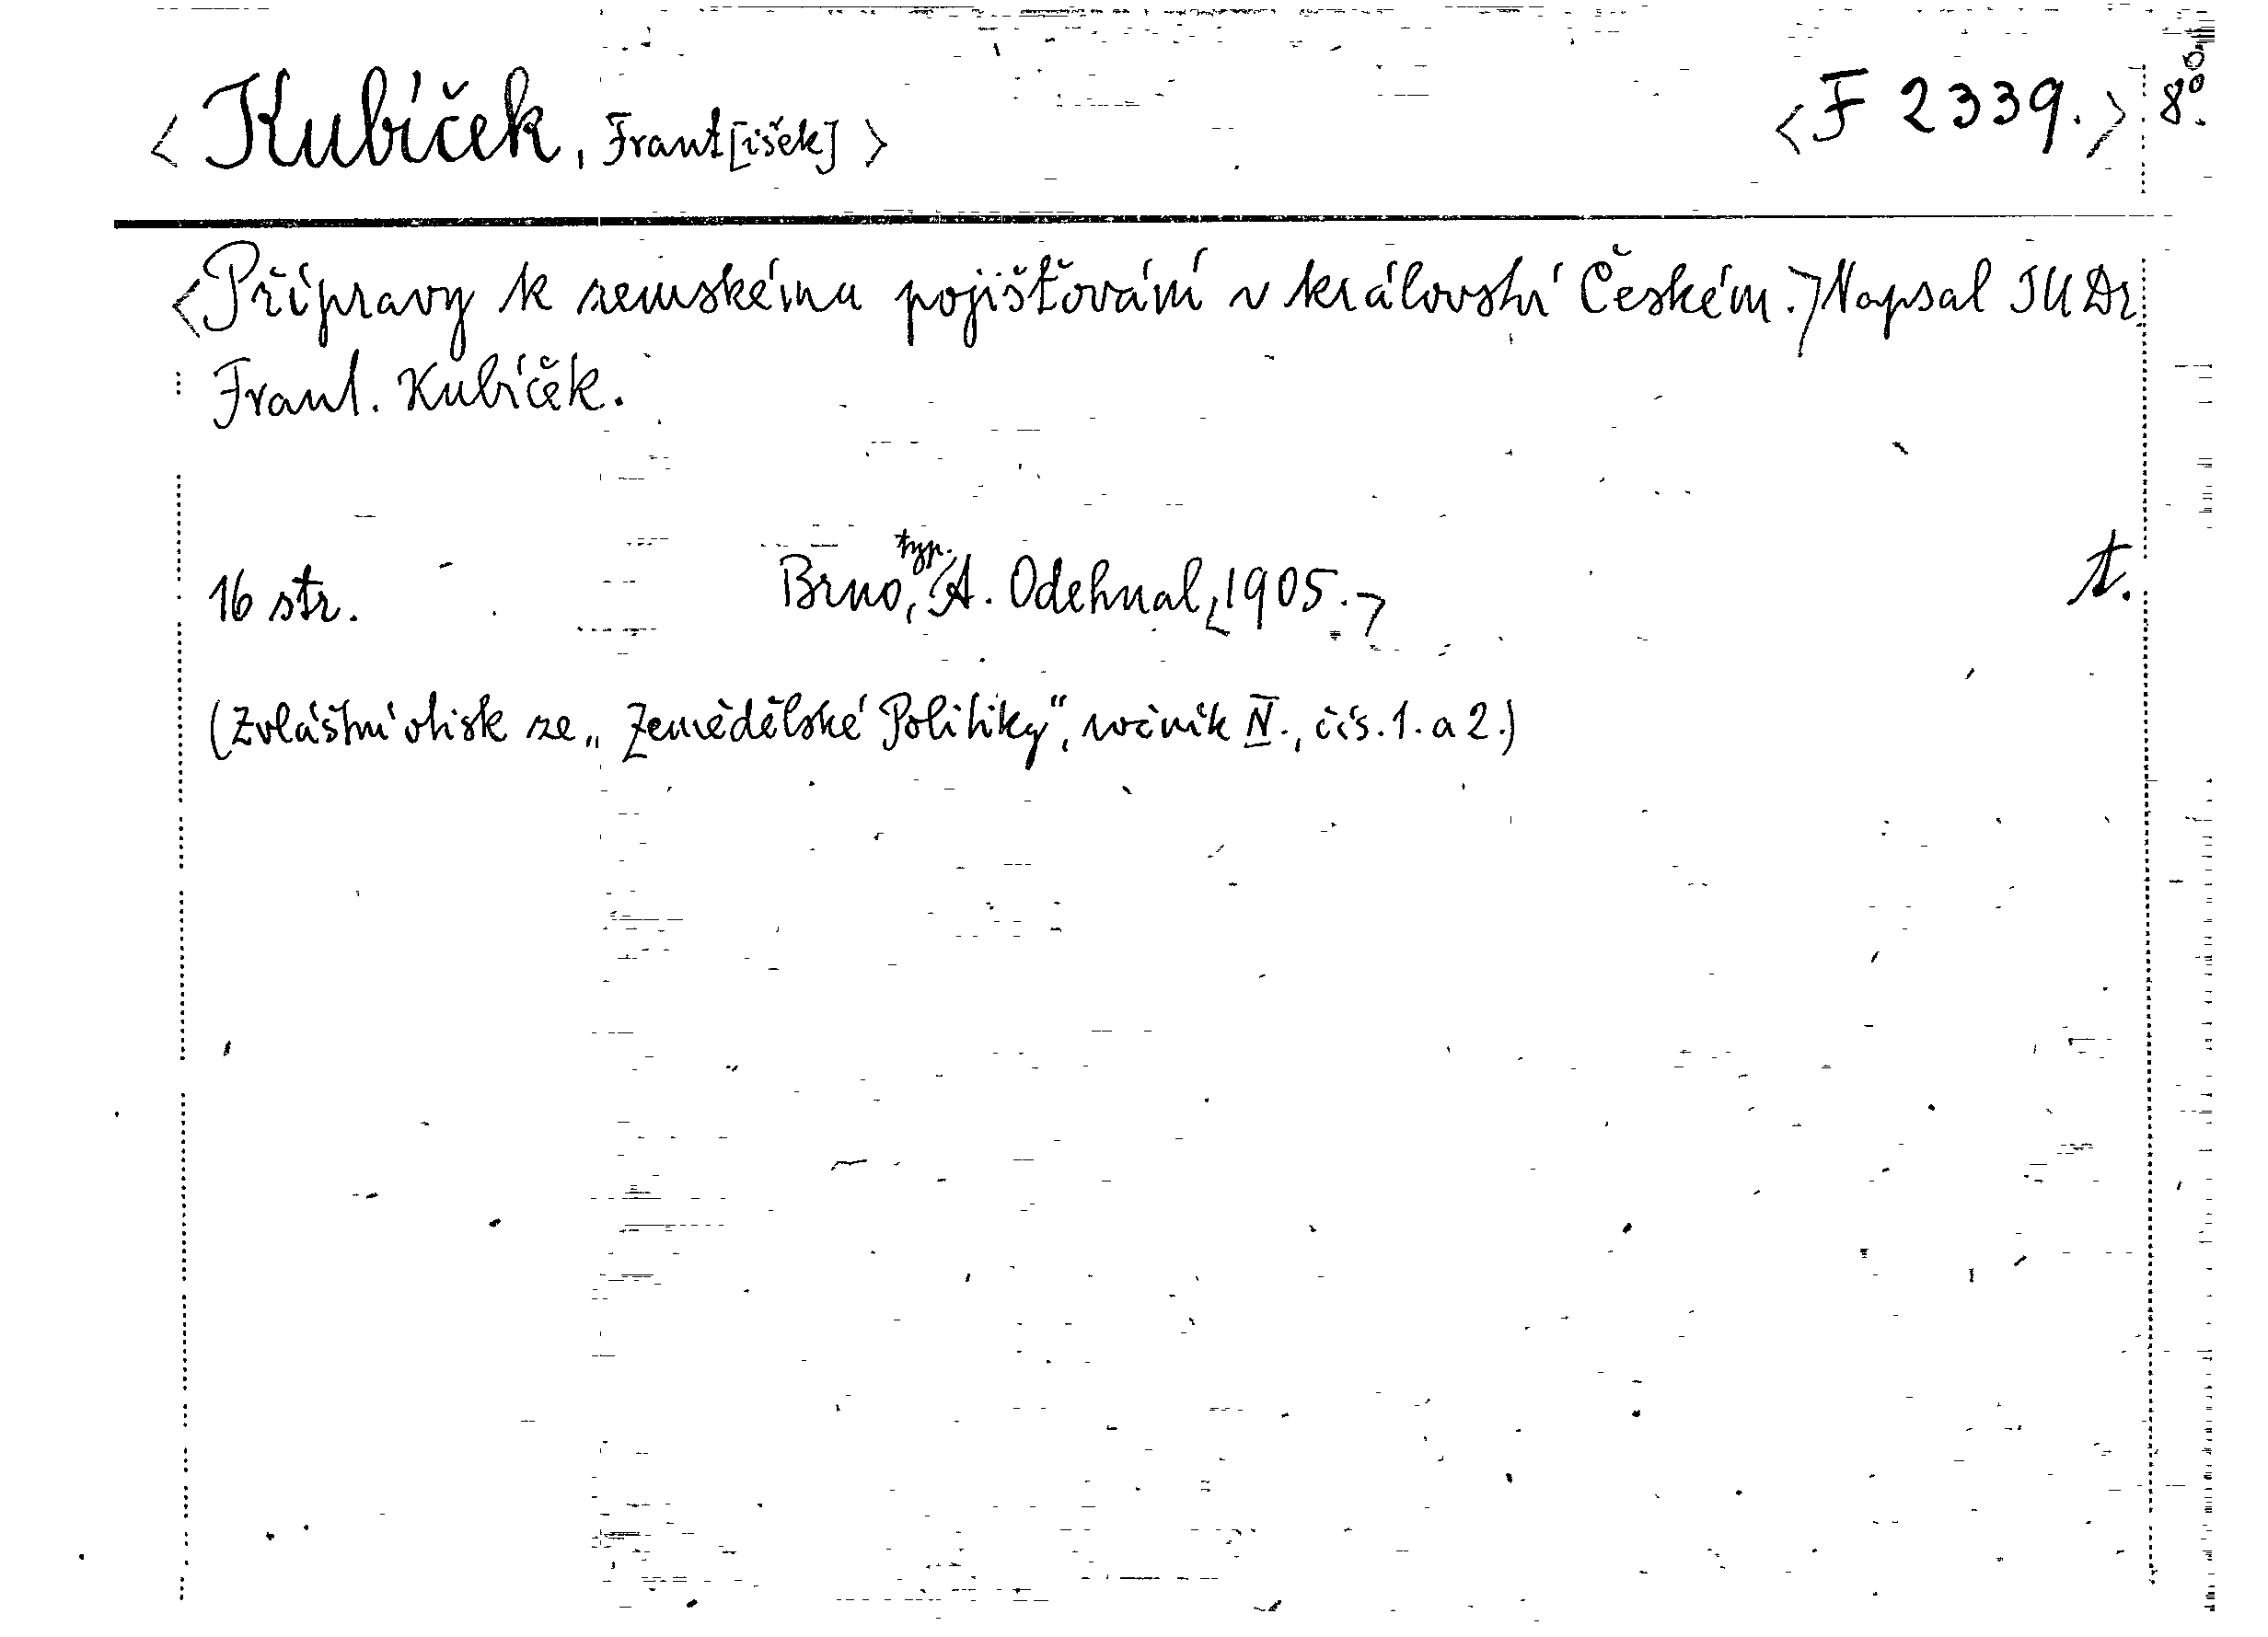 <Kubíček, Frant[išek]> <F 2339.> 8°.
<Přípravy k zemskému pojišťování v království Českém.> Napsal JUDr.
Frant. Kubíček.
16 str. Brno, typ. A. Odehnal, <1905.> t.
(Zvláštní otisk ze „Zemědělské Politiky“, ročník IV., čís. 1. a 2.)